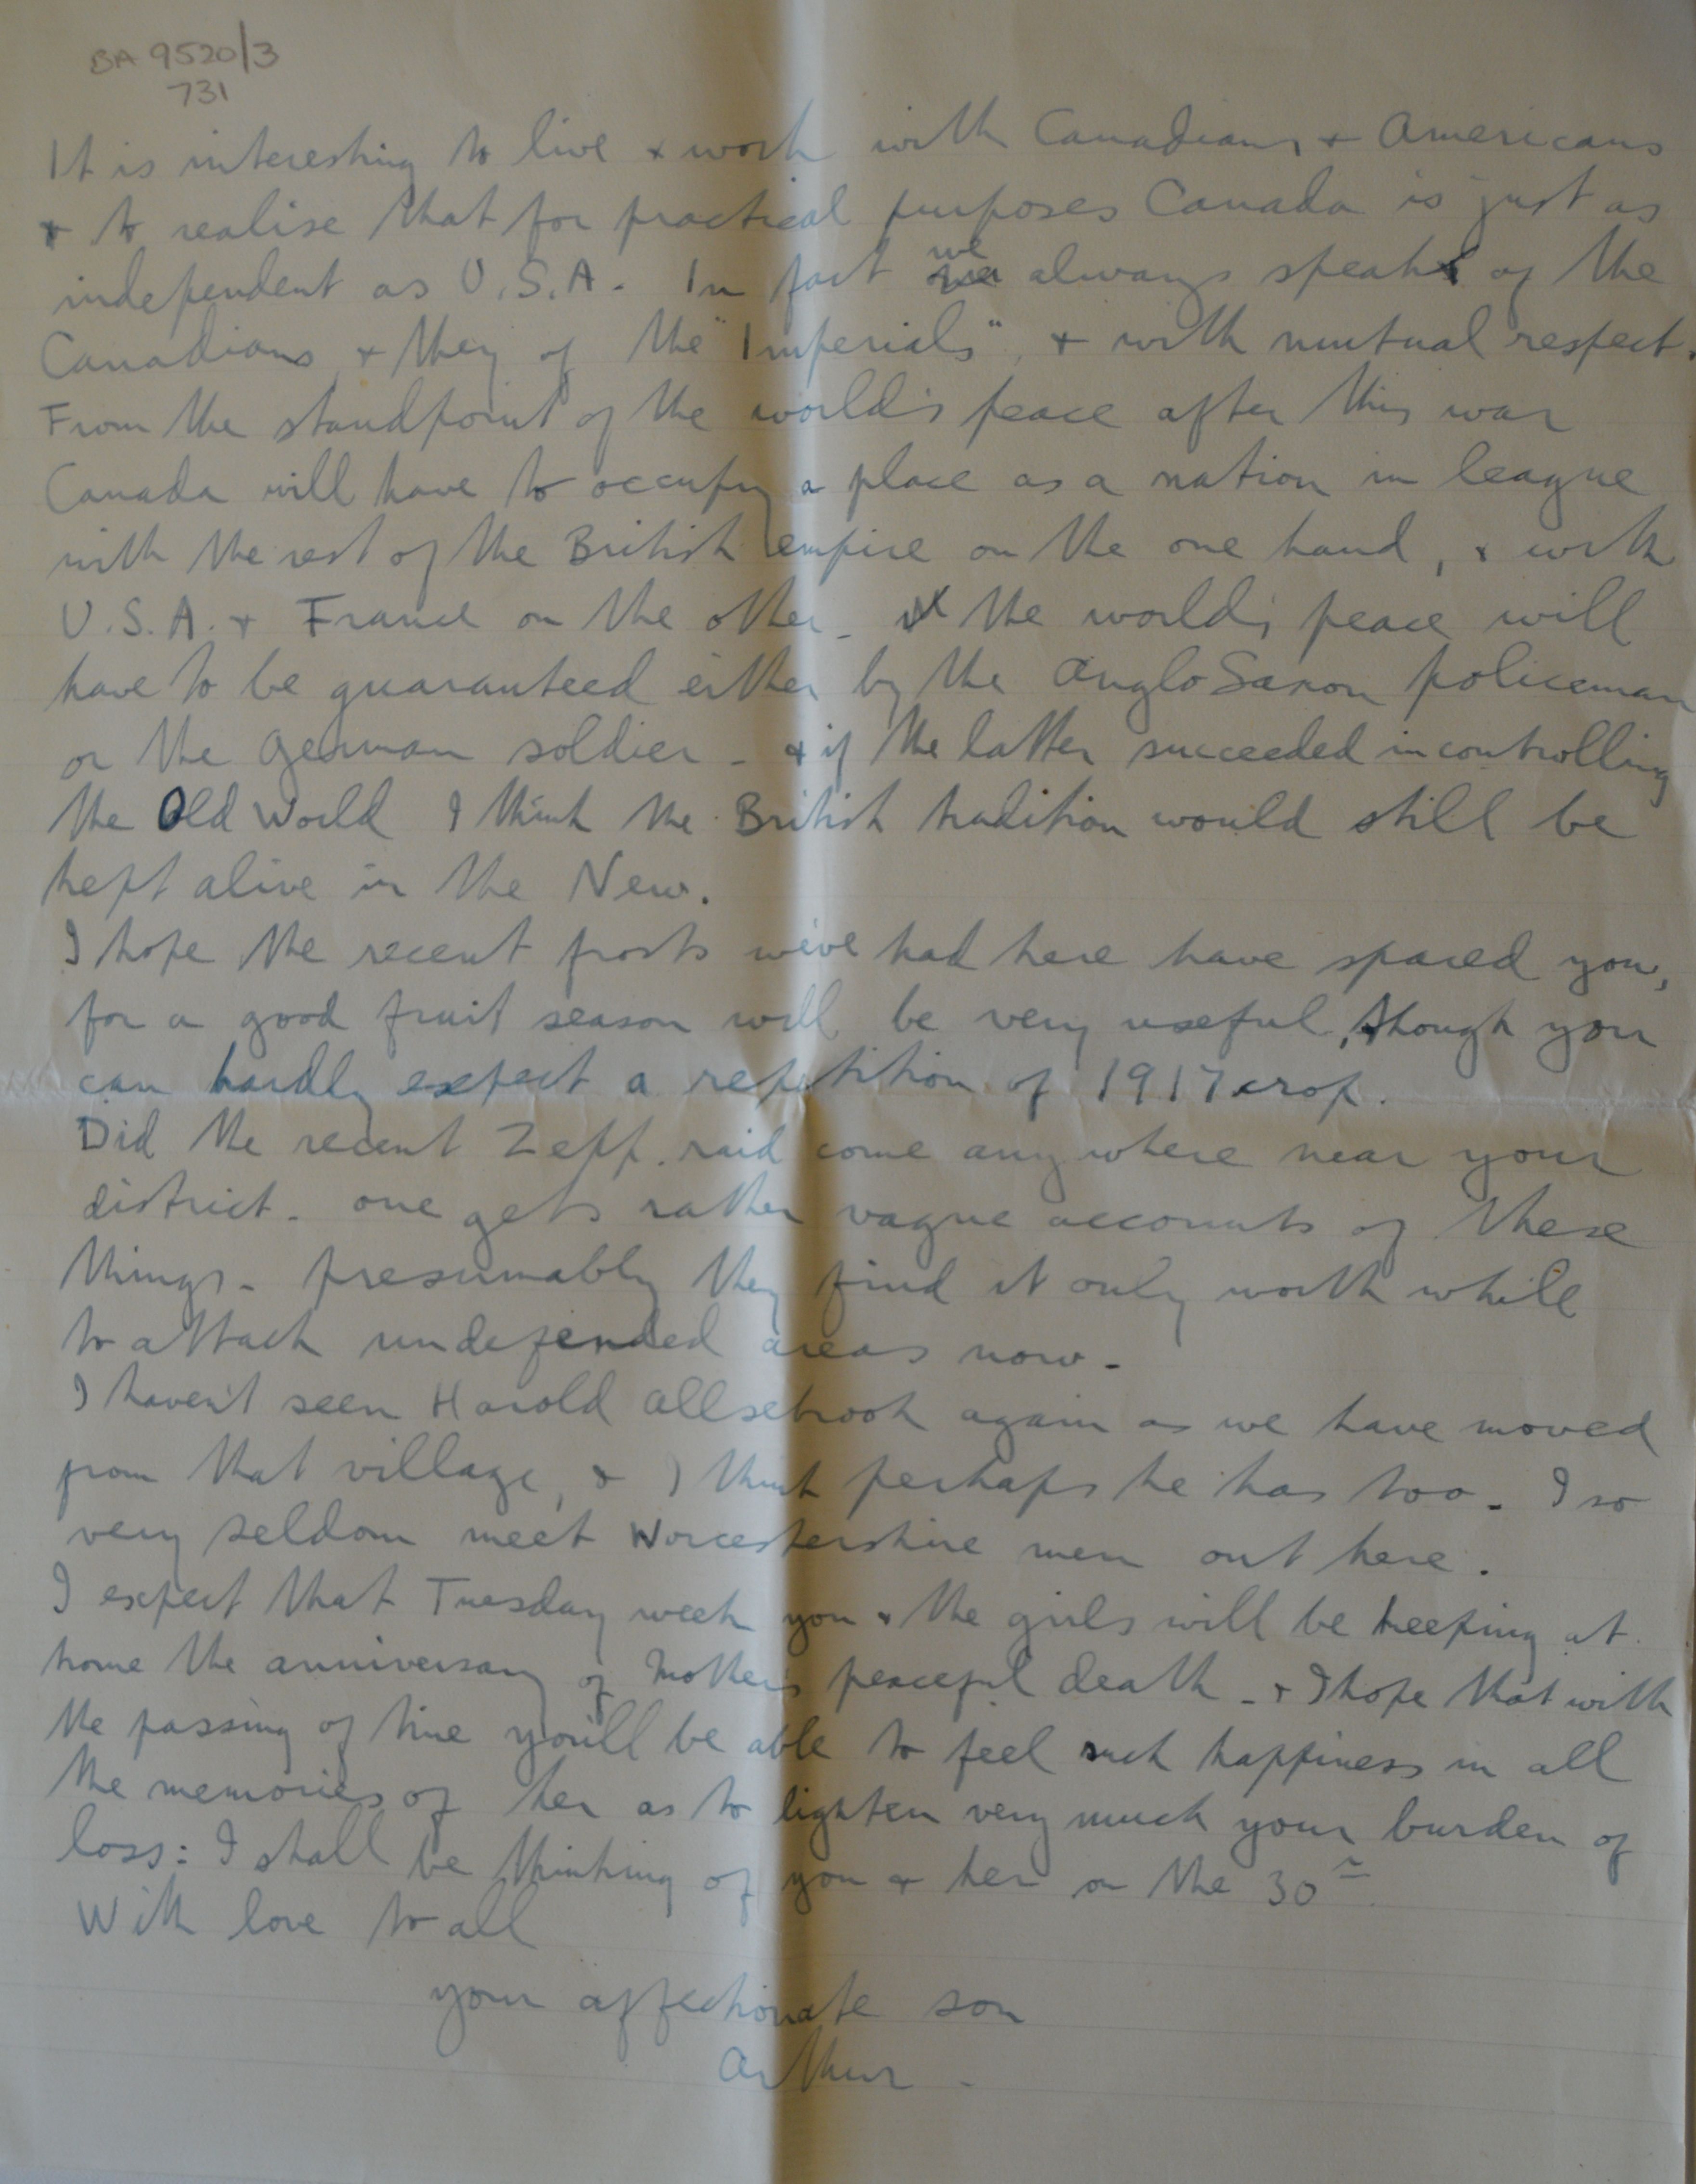 BA 9520/3
731
It is interesting to live + work with Canadians + Americans
+ to realise that for practical purposes Canada is just as
independent as U.S.A. In fact we always speak of the
Canadians + they of the "Imperials", + with mutual respect.
From the standpoint of the world's peace after this war
Canada will have to occupy a place as a nation in league
with the rest of the British empire on the one hand, + with
U.S.A. + France on the other - the world's peace will
have to be guaranteed either by the Anglo Saxon policeman
or the German soldier - + if the latter succeeded in controlling
the Old World I think the British tradition would still be
kept alive in the New.
I hope the recent frosts we've had here have spared you,
for a good fruit season will be very useful, though you
can hardly expect a repetition of 1917 crop.
Did the recent Zepp. raid come any where near your
district - one gets rather vague accounts of these
things - presumably they find it only worth while
to attack undefended areas now -
I haven't seen Harold Allsebrook again as we have moved
from that village, + I think perhaps he has too. I so
very seldom meet Worcestershire men out here.
I expect that Tuesday week you + the girls will be keeping at
home the anniversary of Mother's peaceful death - + I hope that with
the passing of time you'll be able to feel such happiness in all
the memories of her as to lighten very much your burden of
loss: I shall be thinking of you + her on the 30th
With love to all
your affectionate son
Arthur -